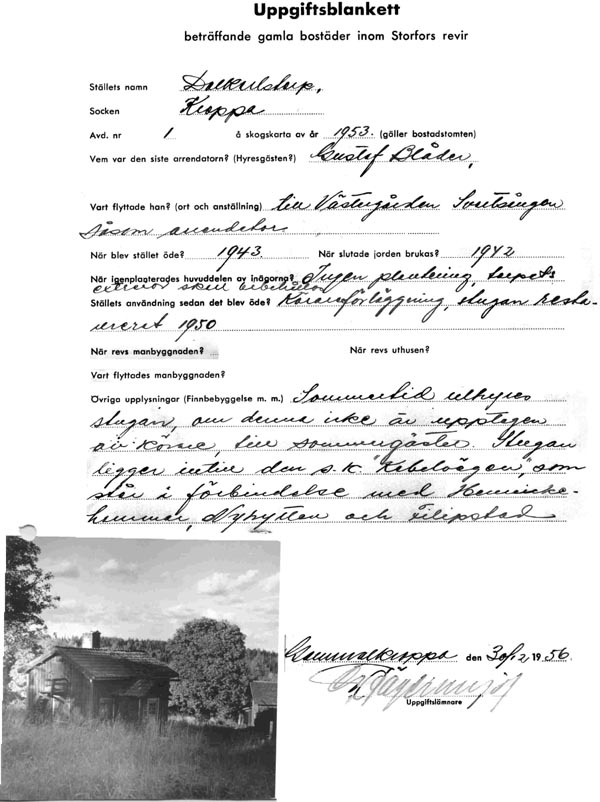 Uppgiftsblankett
beträffande gamla bostäder inom Storfors revir
Ställets namn Dalkarlstorp,
Socken Kroppa
Avd. nr 1 å skogskarta av år 1953. (gäller bostadstomten)
Vem var den siste arrendatorn? (Hyresgästen?) Gustaf Blåder,
Vart flyttade han? (ort och anställning) till Västergården
såsom arrendator
När blev stället öde? 1943. När slutade jorden brukas? 1942
När igenplanterades huvuddelen av inägorna? Ingen plantering, torpets
exteriör skall bibehållas
Ställets användning sedan det blev öde? Körareförläggning, stugan restau-
rerat 1950
När revs manbyggnaden? När revs uthusen?
Vart flyttades manbyggnaden?
Övriga upplysningar (Finnbebyggelse m. m.) Sommartid uthyres
stugan, om denna icke är upptagen
av körare, till sommargäster. Stugan
ligger intill den s.k. "Kabelvägen", som
står i förbindelse med Hennicke-
hammar, Nyhyttan och Filipstad
Gammalkroppa den 30/12 1956.
Uppgiftslämnare